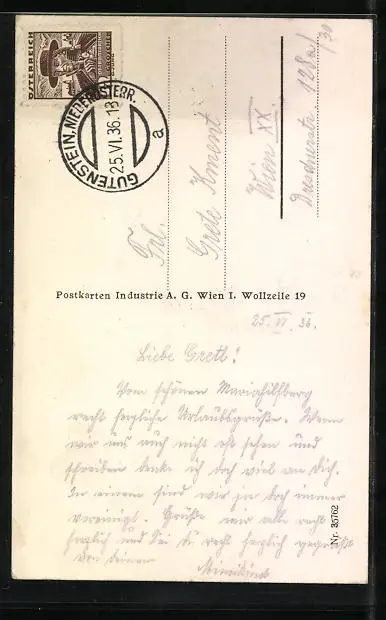 ÖSTERREICH
GUTENSTEIN, NIEDERÖSTERR.
25.VI.36.18
a
Frl.
Grete Kment
Wien XX.
Dresdnerstr 128a/
/30
Postkarten Industrie A. G. Wien I. Wollzeile 19
25. VI. 36.
Liebe Gretl!
Vom schönen Mariahilfberg
recht herzliche Urlaubsgrüße. Wenn
wir uns auch nicht oft sehen und
schreiben denke ich doch viel an dich.
In einem sind wir ja doch immer
vereinigt. Grüße mir alle recht
herzlich und sei du recht herzlich gegrüßt
von deinem
Nr. 35762